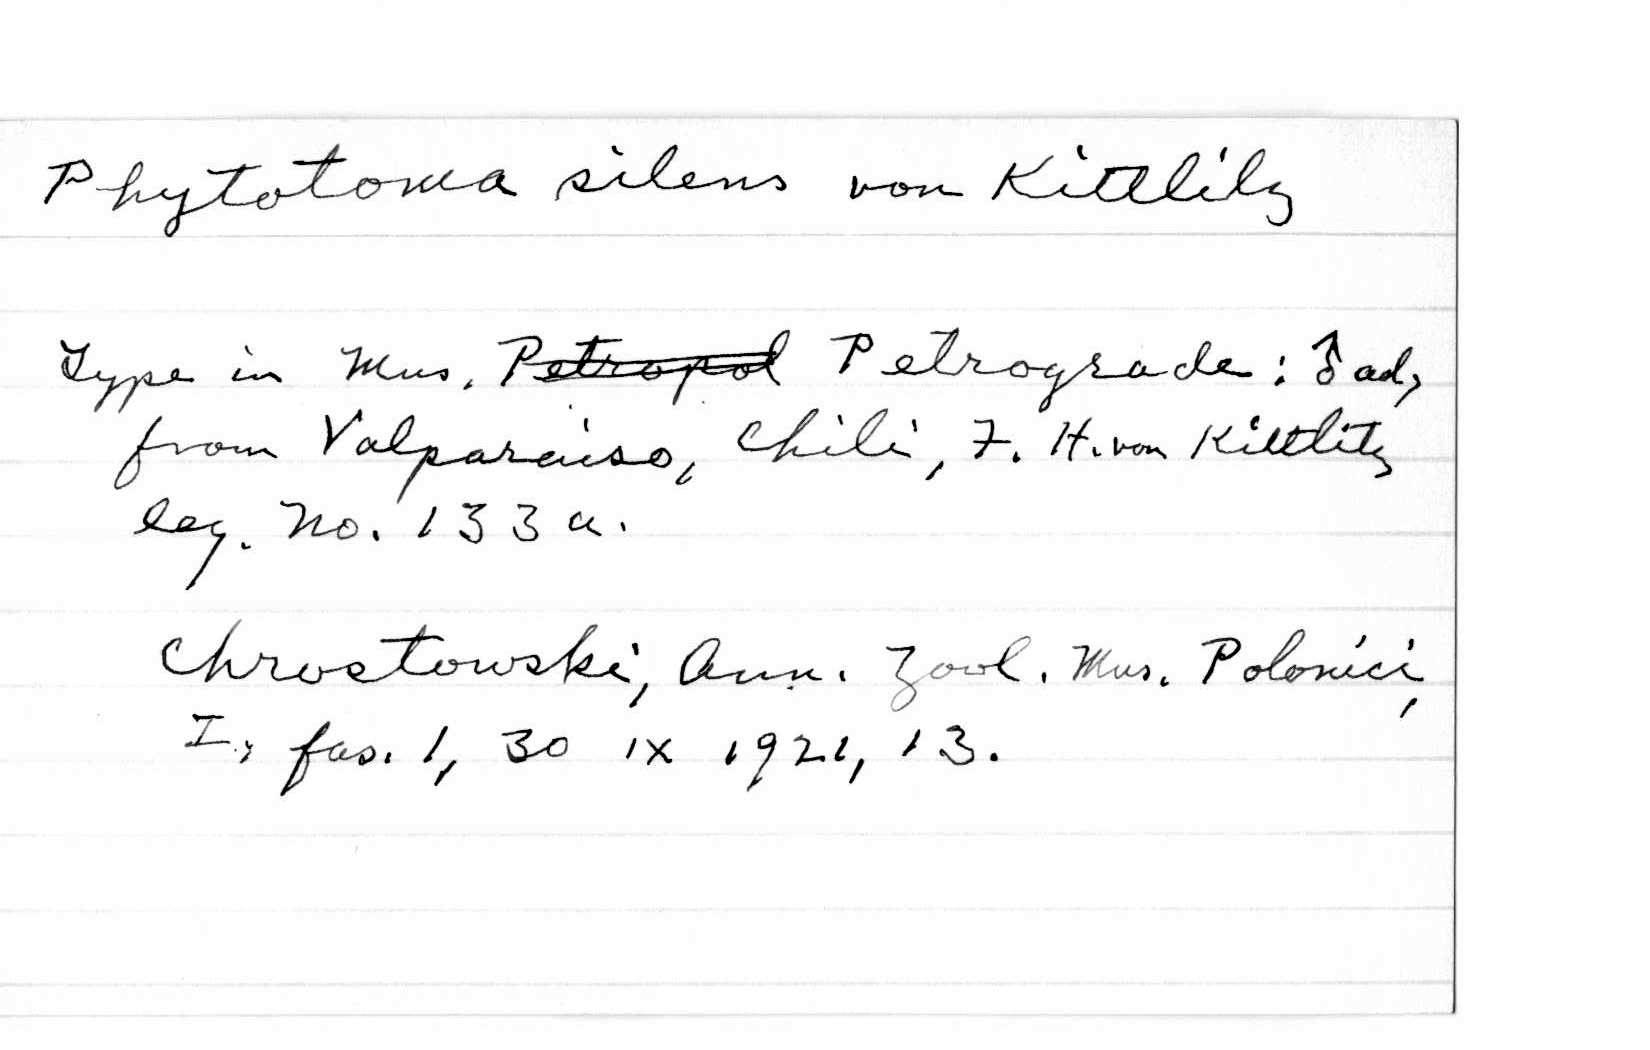 Phytotoma silens von Kittlitz
Type in Mus. Petropol Petrograde: ♂ ad,
from Valparaiso, Chili, F. H. von Kittlitz
leg. No. 133a.
Chrostowski, Ann. Zool. Mus. Polonici,
I, fas. 1, 30 IX 1921, 13.